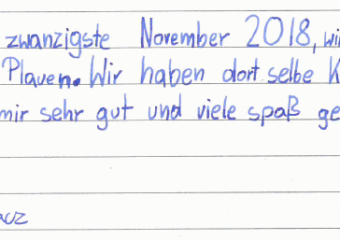 zwanzigste November 2018, wi
Plauen. Wir haben dort selbe K
mir sehr gut und viele spaß ge
acz